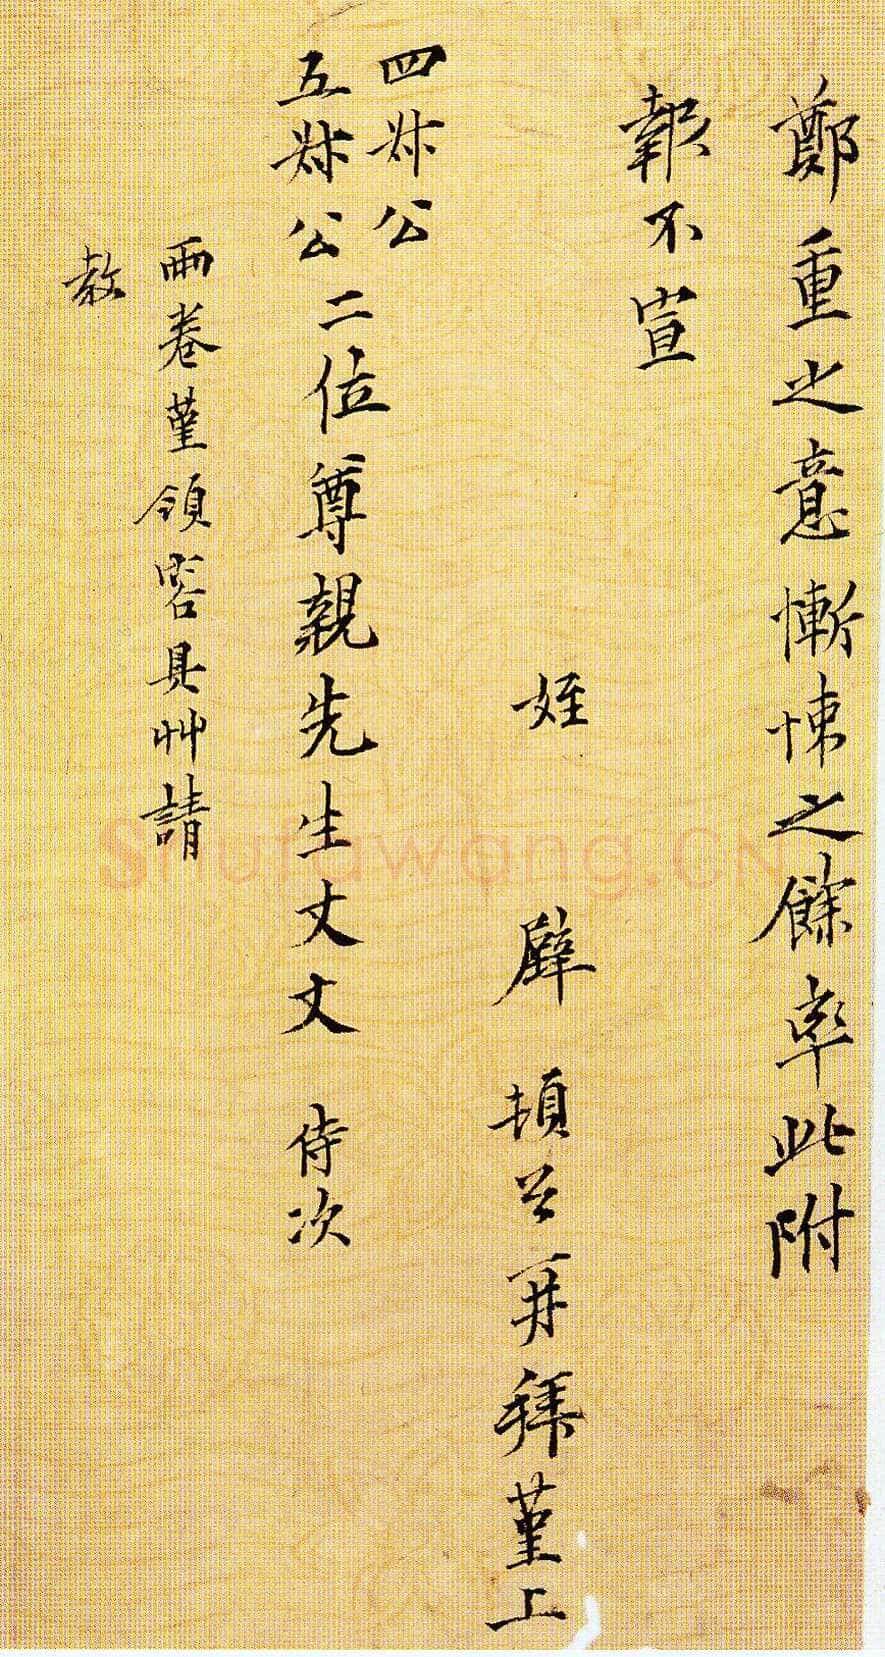 鄭重之意慚悚之餘率此附
報不宣
姪 辟 頓首再拜堇上
四叔公
五叔公二位尊親先生丈丈 侍次
兩卷堇領容具艸請
教
Shufawang.CN